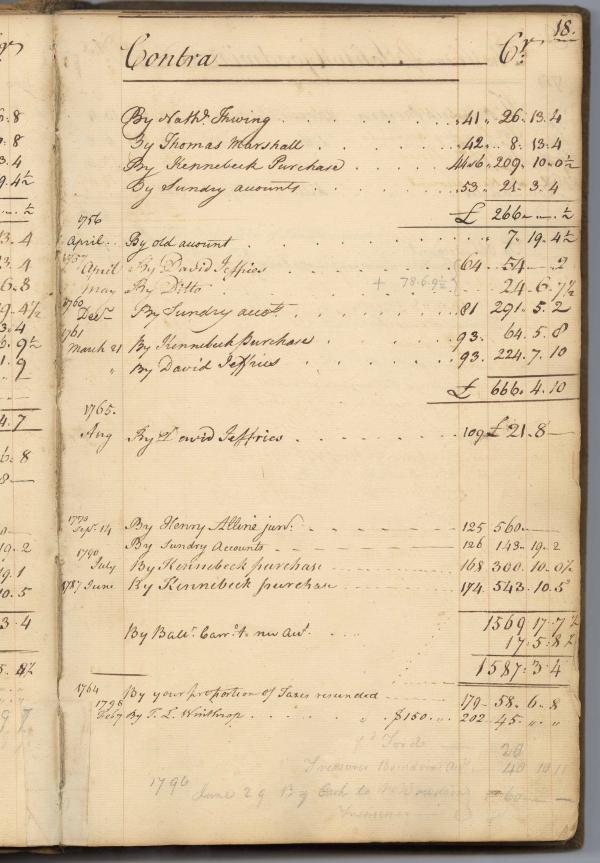 18.
Contra Cr
By Nathl. Thwing 41 26. 13. 4
By Thomas Marshall 42 8. 13. 4
By Kennebeck Purchase 44&46. 209. 10. 0½
By Sundry accounts 53 21. 3. 4
£ 266. — . — ½
1756
April By old account 7. 19. 4½
1757
April By David Jeffries 64 54. — 2
May By Ditto + 78.6.9½ 24. 6. 7½
1760
Decr By Sundry accotts 81 291. 5. 2
1761
March 21 By Kennebeck Purchase 93. 64. 5. 8
" By David Jeffries 93. 224. 7. 10
£ 666. 4. 10
1765.
Aug By David Jeffries 109 £21. 8 —
Sept. 14 By Henry Alline junr. 125 560. —
By Sundry Accounts 126 143. 19. 2
July By Kennebeck purchase 168 300. 10. 0½
1787 June By Kennebeck purchase 174. 543. 10. 5
1569 17. 7½
By Balr. Carrd. to nw Aut. 17. 5. 8½
1587. 3. 4
1764 By your proportion of Taxes resunded 179 58. 6. 8
Feb 7 By T. L. Winthrop " $150. 202 45. " "
20
Treasurer Bowdoin 40 10 11
1796 June 29 By Cash to Bowdoin 60 —
Treasurer